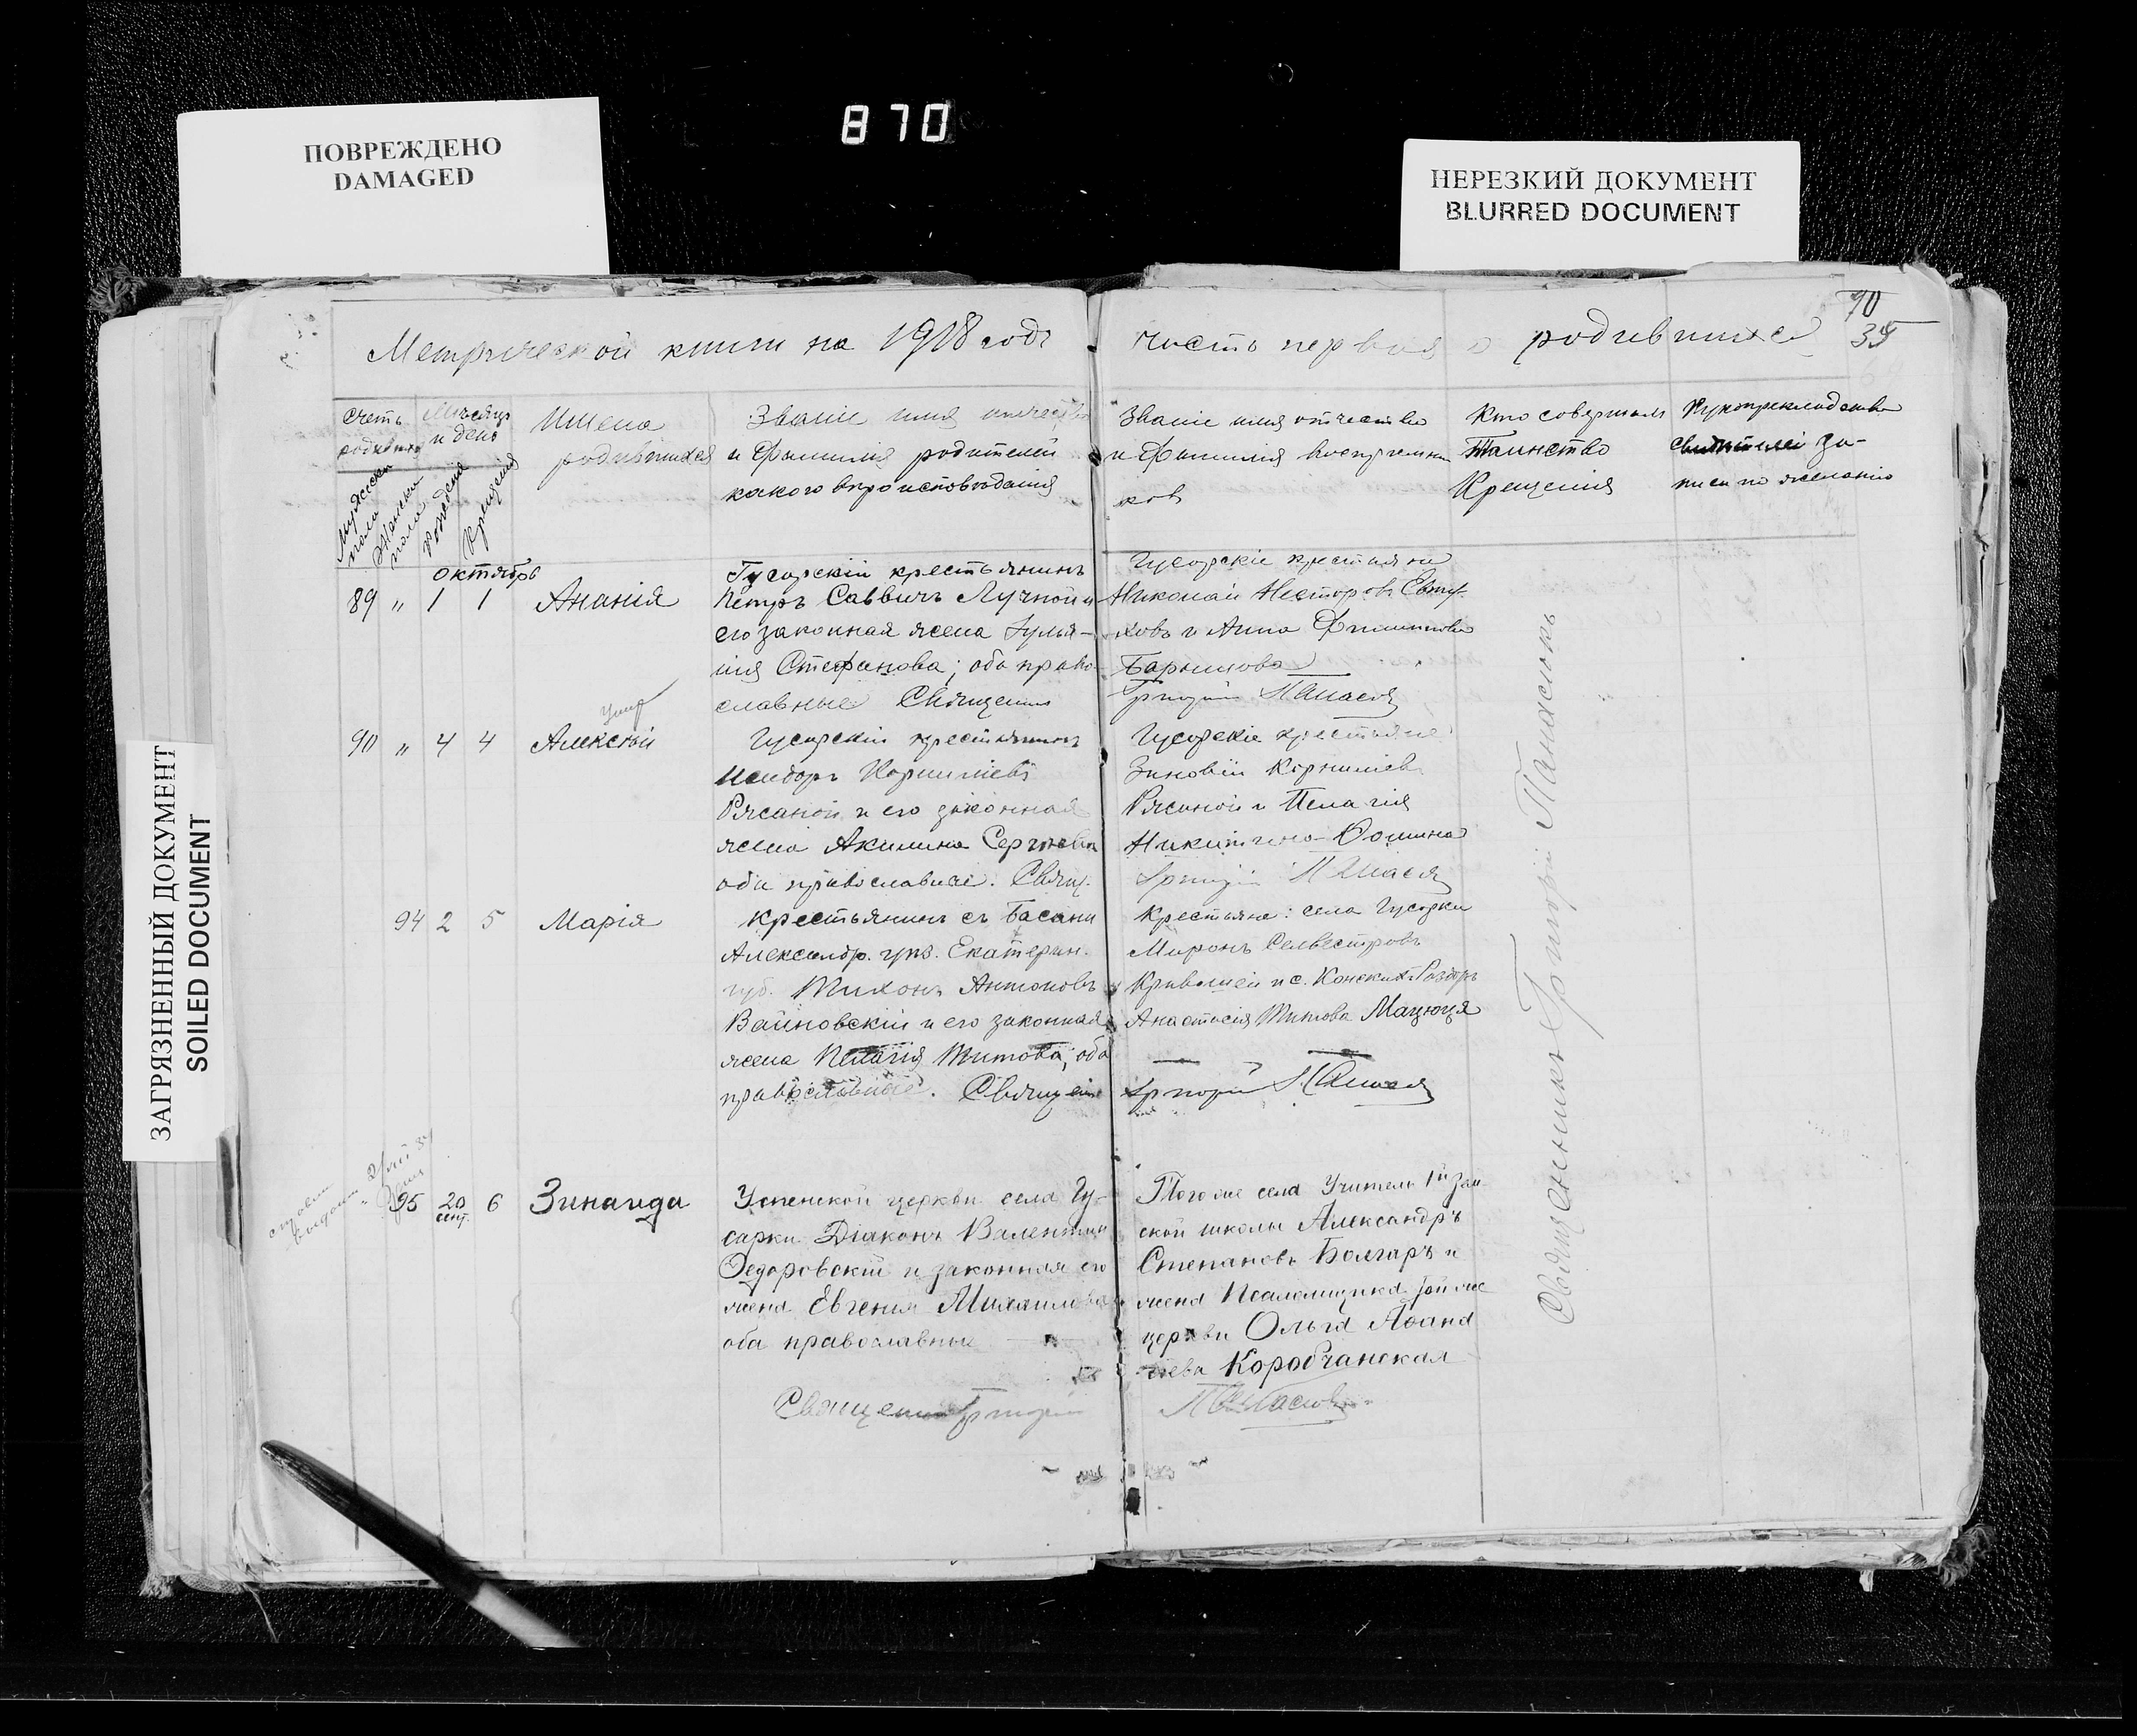 870
ПОВРЕЖДЕНО
DAMAGED
НЕРЕЗКИЙ ДОКУМЕНТ
BLURRED DOCUMENT
ЗАГРЯЗНЕННЫЙ ДОКУМЕНТ
SOILED DOCUMENT
Метрической книги на 1918 годъ
часть первая о родившихся
90
35
Счетъ
родивш
Мужска
пола
Женска
пола
Мѣсяцъ
и день
Рожденія
Крещенія
Имена
родившихся
Званіе имя отчество
и Фамилія родителей
какого вѣроисповѣданія
Званіе имя отчество
и Фамилія воспріемни
ковъ
Кто совершалъ
Таинство
Крещенія
Рукоприкладство
свидѣтелей за-
писи по желанію
Октябрь
89 " 1 1 Ананія
Гусарскій крестьянинъ
Петръ Саввичъ Лучной и
его законная жена Іулья-
нія Стефанова; оба право-
славные Священн
Гусарскіе крестьяне
Николай Несторовъ Евту-
ховъ и Анна Филиппова
Барышова
Григорій Панасюк
90 " 4 4 Алексѣй
умер
Гусарскій крестьянинъ
Исидоръ Корниліевъ
Рясаной и его законная
жена Акилина Сергѣева
оба православные. Свящ.
Гусарскіе крестьяне
Зиновій Корниліев
Рясаной и Пелагія
Никитина Фомина
Григорій Панасюк
94 2 5 Марія
Крестьянинъ с. Басани
Александр. уѣз. Екатерин.
губ. Тихонъ Антоновъ
Войновскій и его законная
жена Пелагія Титова; оба
православные. Священ
Крестьяне: села Гусарки
Миронъ Селвестровъ
и с. Конскихъ-Раздоръ
Анастасія Титова Мацюця
Григорій Панасюк
95 20 сент. 6 Зинаида
Успенской церкви села Гу-
сарки Діаконъ Валентинъ
Ѳедоровскій и законная его
жена Евгенія Михаилова
оба православные
Священникъ Григорій
Того же села Учитель 1й зем-
ской школы Александръ
Степановъ Болгаръ и
жена Псаломщика той же
церкви Ольга Аѳана
сіева Коробчанская
Панасюкъ
Священникъ Григорій Панасюкъ